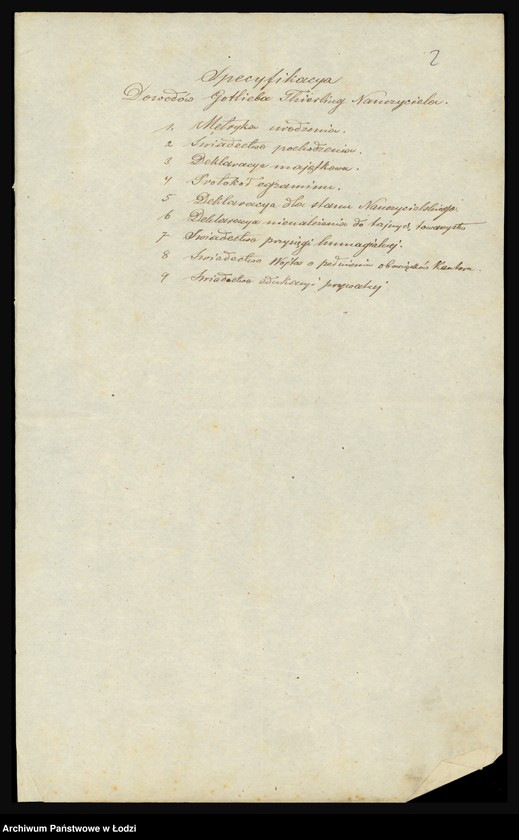 2
Specyfikacya
Dowodów Gotlieba Thierling Nauczyciela.
1. Metryka urodzenia.
2 Świadectwo pochodzenia.
3 Deklaracya majątkowa.
4 Protokół egzaminu.
5 Deklaracya dla stanu Nauczycielskiego.
6 Deklaracya nienależenia do tajnych towarzystw
7 Świadectwo przysięgi homagialnej.
8 Świadectwo Wójta o pełnieniu obowiązków Kantora
9 Świadectwo edukacyi prywatnej
Archiwum Państwowe w Łodzi